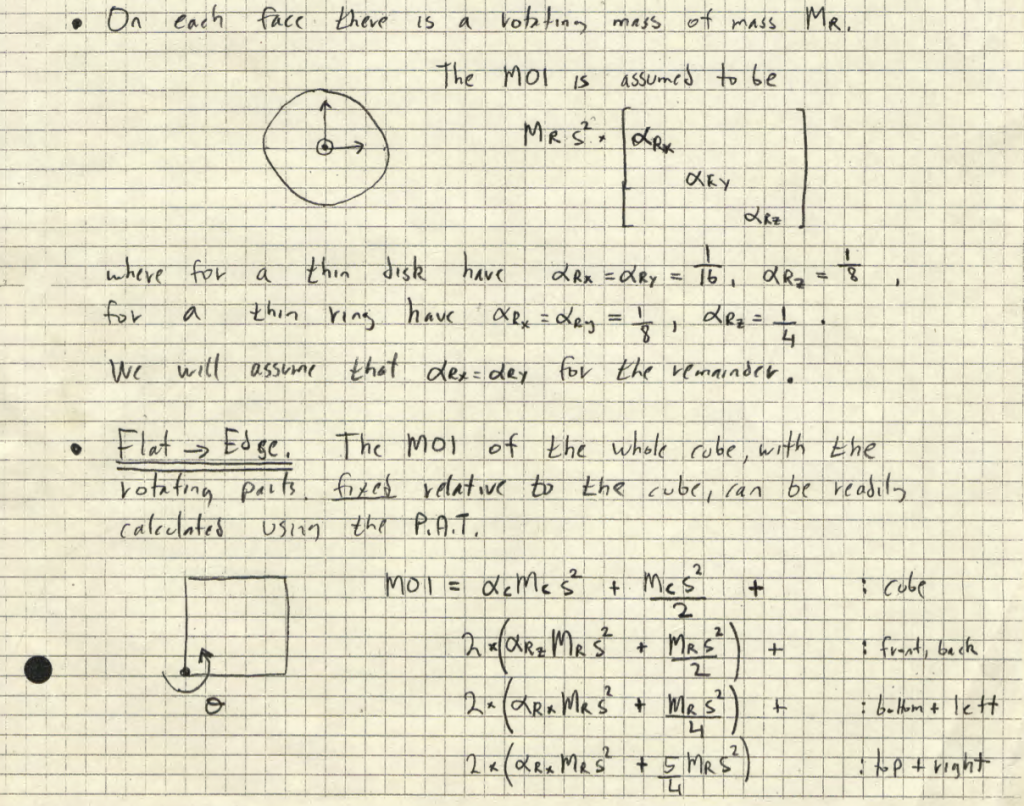 • On each face there is a rotating mass of mass M_R.
The MOI is assumed to be
M_R s² * [α_Rx
α_Ry
α_Rz]
where for a thin disk have α_Rx = α_Ry = 1/16, α_Rz = 1/8,
for a thin ring have α_Rx = α_Ry = 1/8, α_Rz = 1/4.
We will assume that α_Rx = α_Ry for the remainder.
• Flat → Edge. The MOI of the whole cube, with the
rotating parts fixed relative to the cube, can be readily
calculated using the P.A.T.
MOI = α_c M_c s² + M_c s²/2 + : cube
2*(α_Rz M_R s² + M_R s²/2) + : front, back
2*(α_Rx M_R s² + M_R s²/4) + : bottom + left
2*(α_Rx M_R s² + 5/4 M_R s²) : top + right
θ